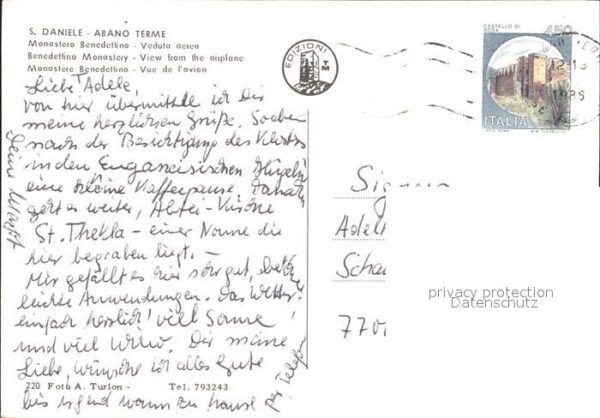 S. DANIELE - ABANO TERME
Monastero Benedettino - Veduta aerea
Benedettino Monastery - View from the airplane
Monastère Benedettino - Vue de l'avion
EDIZIONI
TM
CASTELLO DI
ROSA
450
ITALIA
12-13
1985
Liebe Adele,
von hier übermittle ich Dir
meine herzlichen Grüße. Soeben
nach der Besichtigung des Klosters
in den Euganeischen Hügeln
eine kleine Kaffeepause. Danach
geht es weiter, Abtei-Kirche
St. Thekla - einer Nonne die
hier begraben liegt. -
Mir gefällt es hier sehr gut,
leichte Anwendungen. Das Wetter
einfach herrlich! viel Sonne
und viel Dir meine
Liebe, wünsche ich alles Gute
bis irgend wann zu hause
per Telefon
Deine
Sign
Adel
Scha
770
privacy protection
Datenschutz
220 Foto A. Turlon - Tel. 793243